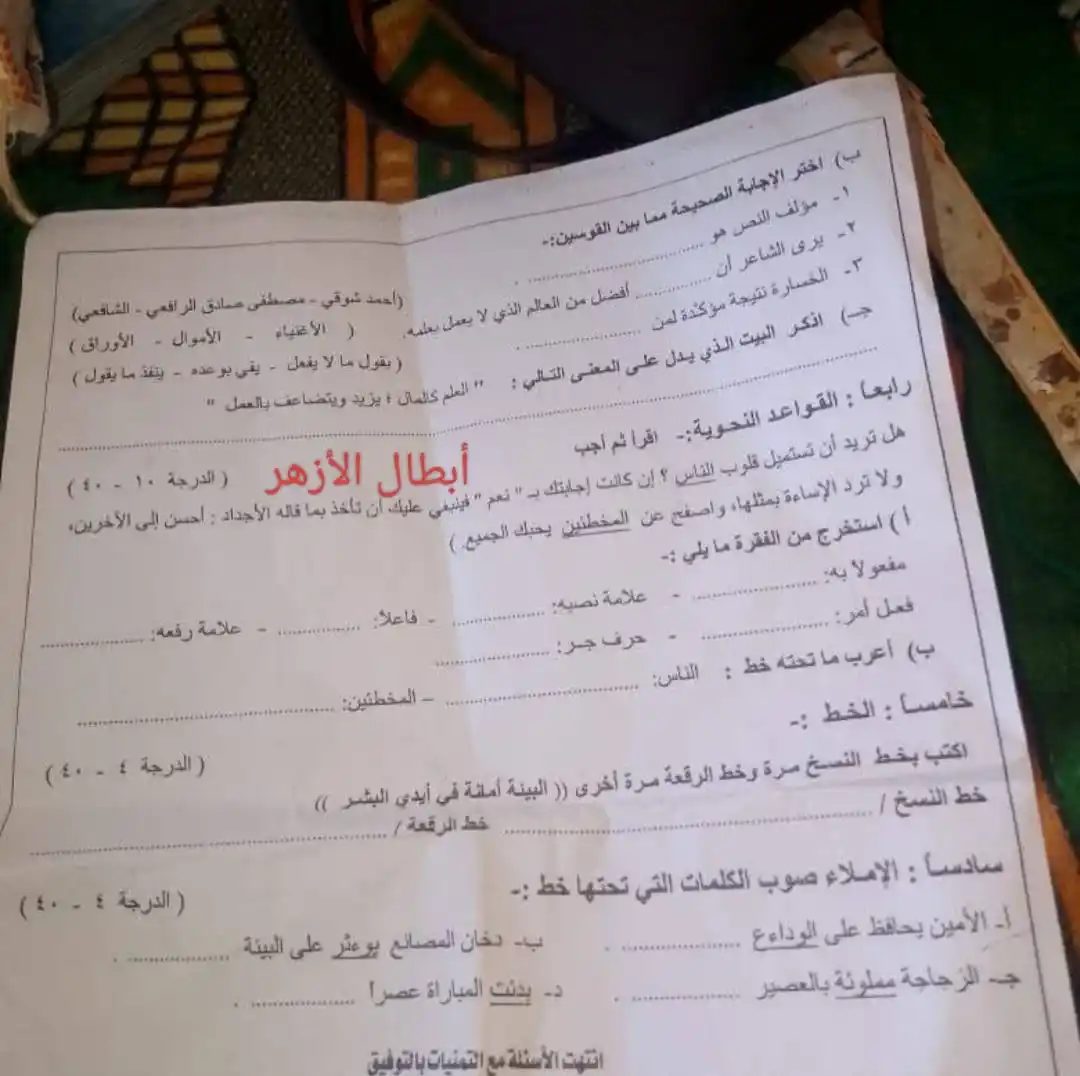 ب) اختر الإجابة الصحيحة مما بين القوسين:-
١- مؤلف النص هو .................... . (أحمد شوقي - مصطفى صادق الرافعي - الشافعي)
٢- يرى الشاعر أن ............ أفضل من العالم الذي لا يعمل بعلمه. ( الأغنياء - الأموال - الأوراق )
٣- الخسارة نتيجة مؤكدة لمن .................... . ( يقول ما لا يفعل - يفي بوعده - ينفذ ما يقول )
جـ) اذكر البيت الذي يدل على المعنى التالي : " العلم كالمال ؛ يزيد ويتضاعف بالعمل "
رابعاً : القواعد النحوية:- اقرأ ثم أجب ( الدرجة ١٠ - ٤٠ )
أبطال الأزهر
هل تريد أن تستميل قلوب الناس ؟ إن كانت إجابتك بـ " نعم " فينبغي عليك أن تأخذ بما قاله الأجداد : أحسن إلى الآخرين،
ولا ترد الإساءة بمثلها، واصفح عن المخطئين يحبك الجميع. )
أ ) استخرج من الفقرة ما يلي :-
مفعولاً به: .................... - علامة نصبه: ............... - فاعلاً: ............... - علامة رفعه: ..................
فعل أمر: .................... - حرف جر: ....................
ب) أعرب ما تحته خط : الناس: .............................. – المخطئين: ........................................
خامساً : الخط :- ( الدرجة ٤ - ٤٠ )
اكتب بخط النسخ مرة وخط الرقعة مرة أخرى (( البيئة أمانة في أيدي البشر ))
خط النسخ / .................................................. خط الرقعة / ..................................................
سادساً : الإملاء صوب الكلمات التي تحتها خط :- ( الدرجة ٤ - ٤٠ )
أ- الأمين يحافظ على الوداءع .................... . ب- دخان المصانع يوءثر على البيئة .................... .
جـ- الزجاجة مملوئة بالعصير .................... . د- بدئت المباراة عصراً .................... .
انتهت الأسئلة مع التمنيات بالتوفيق